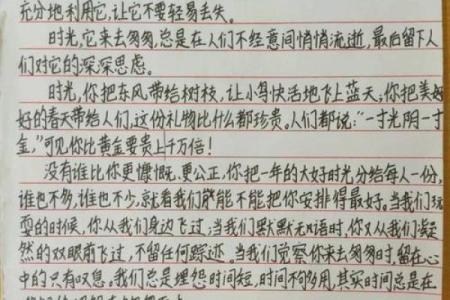 充分地利用它，让它不要轻易丢失。
时光，它来去匆匆，总是在人们不经意间悄悄流逝，最后留下人
们对它的深深思虑。
时光，你把东风带给树枝，让小鸟快活地飞上蓝天；你把美好
好的春天带给人们，这份礼物比什么都珍贵。人们都说：“一寸光阴一寸
金，”可见你比黄金要贵上千万倍！
没有谁比你更慷慨、更公正，你把一年的大好时光分给每人一份，
谁也不多，谁也不少，就看我们能不能把你安排得最好。当我们玩
耍的时候，你从我们身边飞过；当我们默默无语时，你又从我们凝
然的双眼前飞过，不留任何踪迹。当我们觉察你来去匆匆时，留在心
中的只有叹息。我们总是埋怨时间短，时间不够用，其实时间总是在